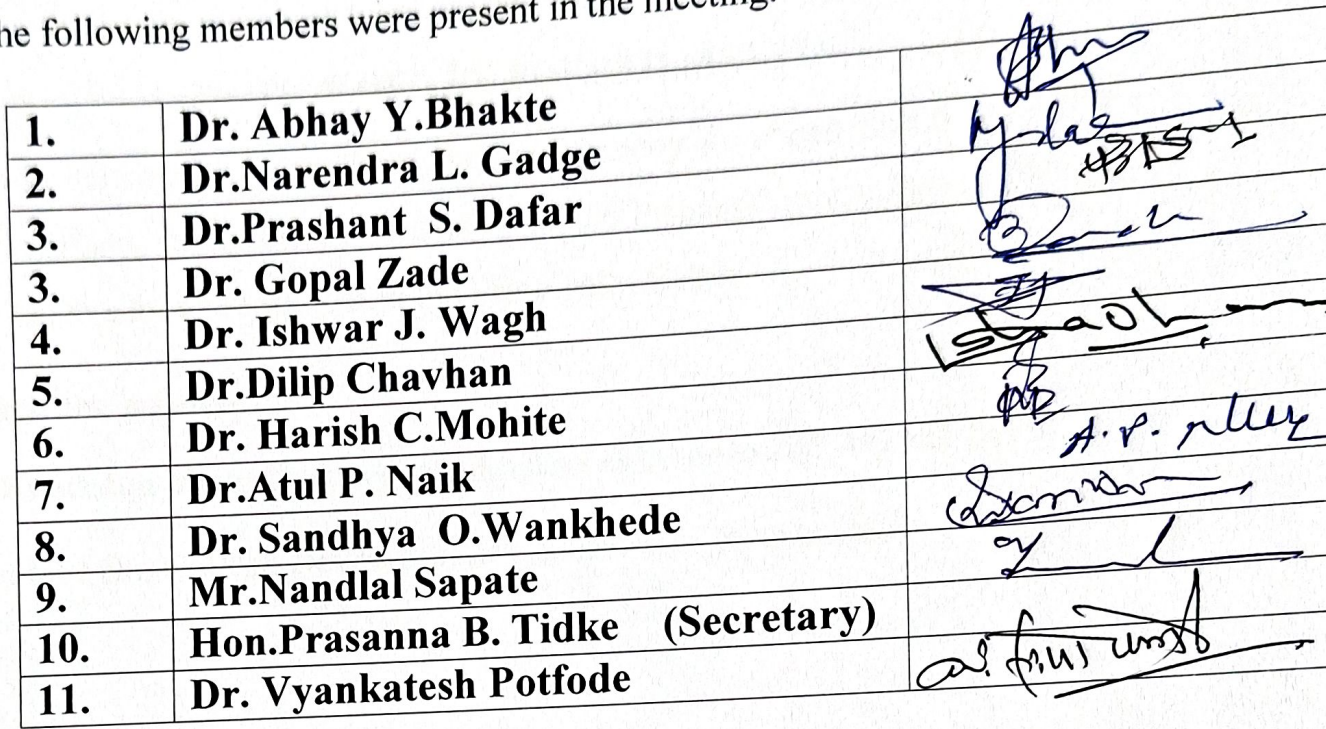 he following members were present in the meeting.
1. Dr. Abhay Y.Bhakte
2. Dr.Narendra L. Gadge
3. Dr.Prashant S. Dafar
3. Dr. Gopal Zade
4. Dr. Ishwar J. Wagh
5. Dr.Dilip Chavhan
6. Dr. Harish C.Mohite
7. Dr.Atul P. Naik A.P.
8. Dr. Sandhya O.Wankhede
9. Mr.Nandlal Sapate
10. Hon.Prasanna B. Tidke (Secretary)
11. Dr. Vyankatesh Potfode